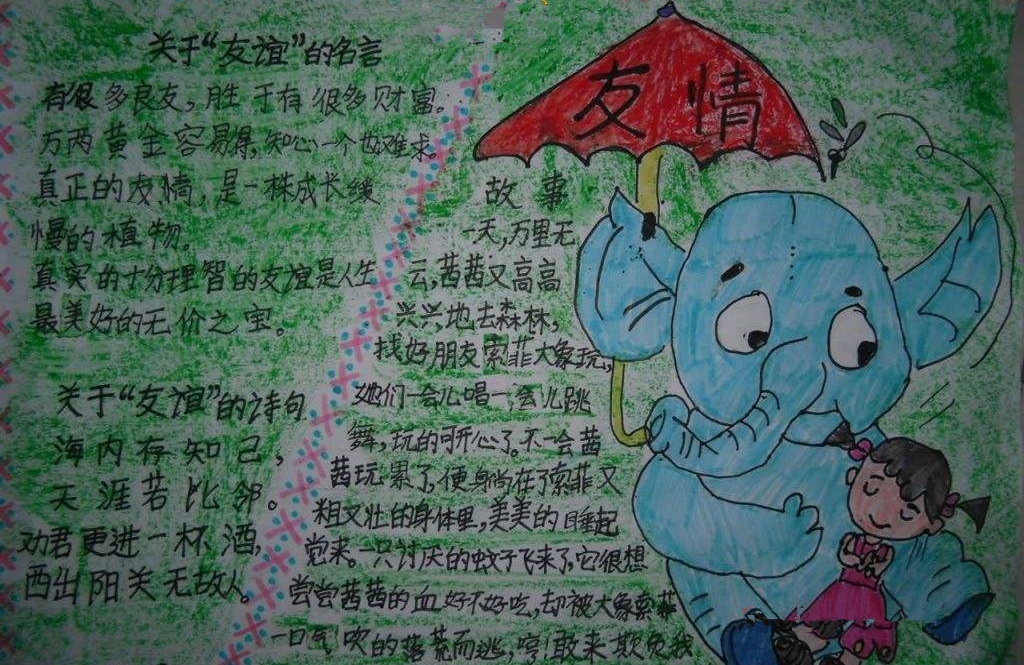 关于“友谊”的名言
有很多良友，胜于有很多财富。
万两黄金容易得，知心一个也难求。
真正的友情，是一株成长缓
慢的植物。
真实的十分理智的友谊是人生
最美好的无价之宝。
关于“友谊”的诗句
海内存知己，
天涯若比邻。
劝君更进一杯酒，
西出阳关无故人。
友情
故事
一天，万里无
云，茜茜又高高
兴兴地去森林，
找好朋友索菲大象玩，
她们一会儿唱一会儿跳
舞，玩的可开心了。不一会茜
茜玩累了，便躺在了索菲又
粗又壮的身体里，美美的睡起
觉来。一只讨厌的蚊子飞来了，它很想
尝尝茜茜的血好不好吃，却被大象索菲
一口气吹的落荒而逃，哼！敢来欺负我